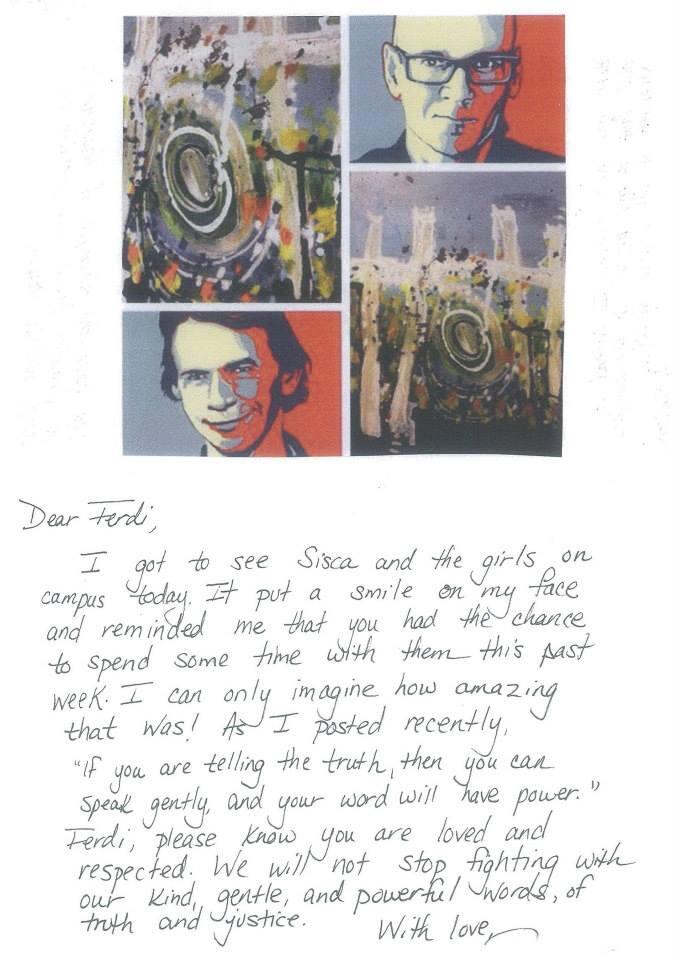 Dear Ferdi,
I got to see Sisca and the girls on
campus today. It put a smile on my face
and reminded me that you had the chance
to spend some time with them this past
week. I can only imagine how amazing
that was! As I posted recently,
"If you are telling the truth, then you can
speak gently, and your word will have power."
Ferdi, please know you are loved and
respected. We will not stop fighting with
our kind, gentle, and powerful words, of
truth and justice.
With love,